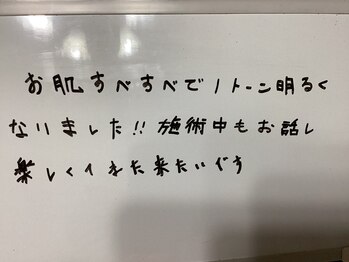 お肌すべすべで1トーン明るく
なりました!!施術中もお話し
楽しくてまた来たいです